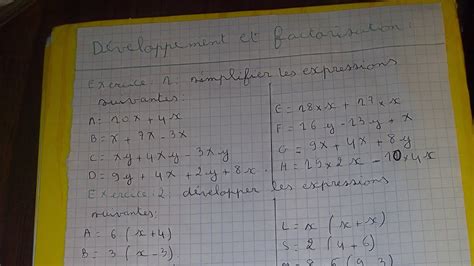 Développement et factorisation :
Exercice 1: simplifier les expressions
suivantes:
A= 20x + 4x
B= x + 7x - 3x
C= xy + 4xy - 3xy
D= 9y + 4x + 2y + 8x
E= 28xx + 27xx
F= 16y - 23y + x
G= 9x + 4x + 8y
H= 29x2x - 10x4x
Exercice 2: développer les expressions
suivantes:
A= 6(x+4)
B= 3(x-3)
L= x(x+x)
S= 2(4+6)